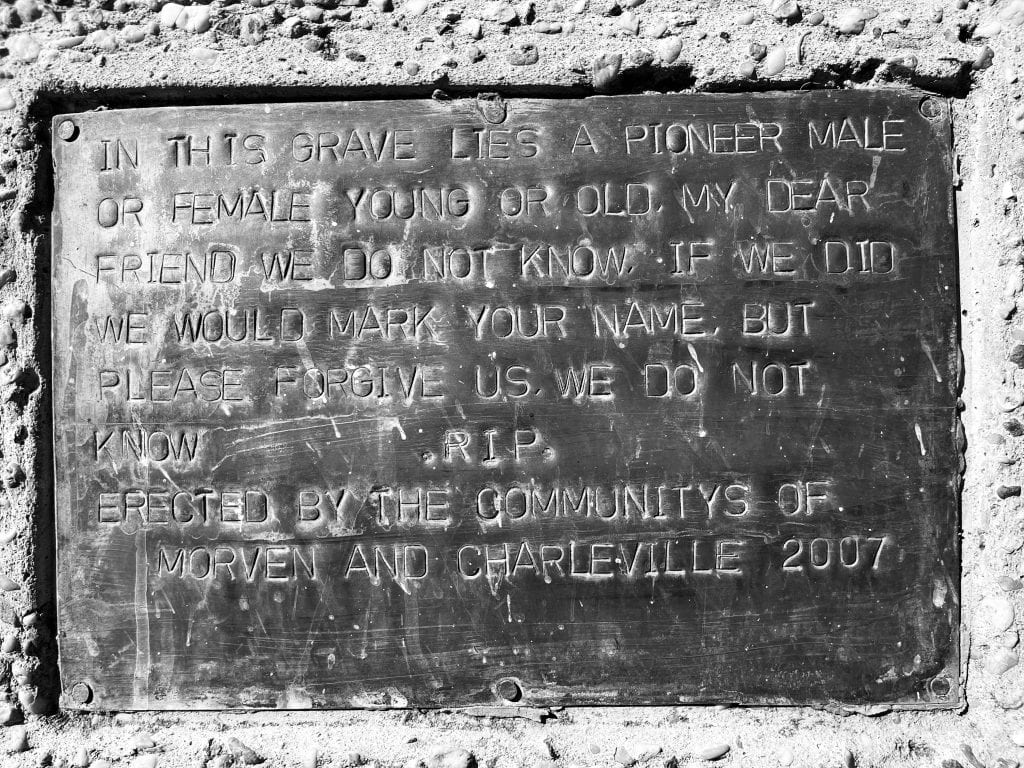 IN THIS GRAVE LIES A PIONEER MALE
OR FEMALE YOUNG OR OLD, MY, DEAR
FRIEND WE DO NOT KNOW, IF WE DID
WE WOULD MARK YOUR NAME, BUT
PLEASE FORGIVE US, WE DO NOT
KNOW .R I P.
ERECTED BY THE COMMUNITYS OF
MORVEN AND CHARLEVILLE 2007